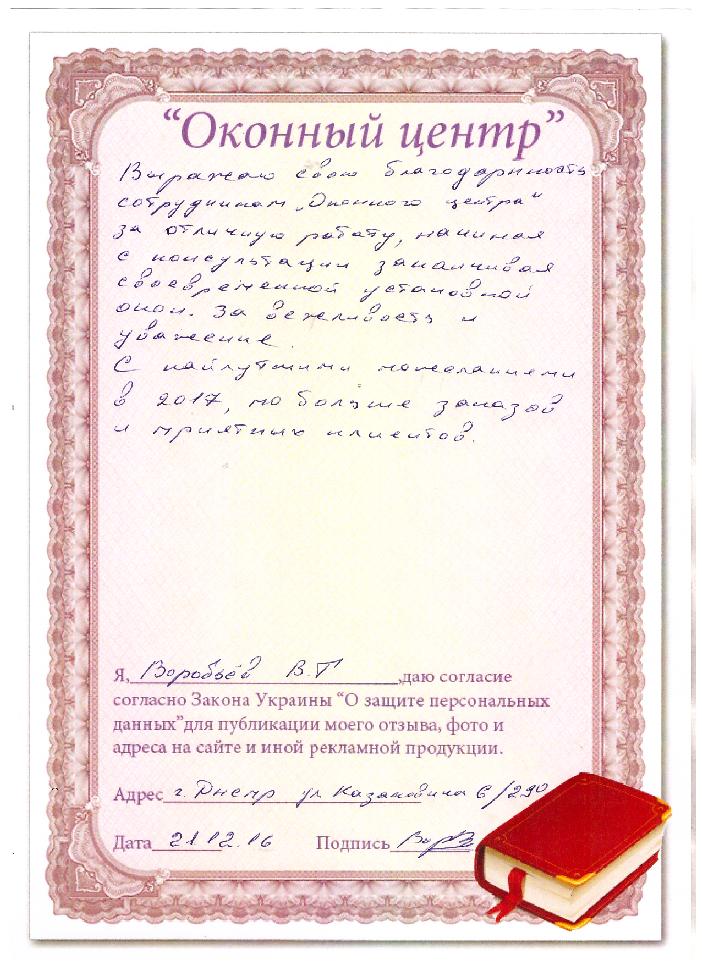 “Оконный центр”
Выражаю свою благодарность
сотрудникам „Оконного центра“
за отличную работу, начиная
с консультации заканчивая
своевременной установкой
окон. За вежливость и
уважение.
С найлутшими пожеланиями
в 2017, по больше заказов
и приятных клиентов.
Я, Воробьёв В.Г ,даю согласие
согласно Закона Украины “О защите персональных
данных”для публикации моего отзыва, фото и
адреса на сайте и иной рекламной продукции.
Адрес г. Днепр ул Казакевича 6/290
Дата 21.12.16 Подпись